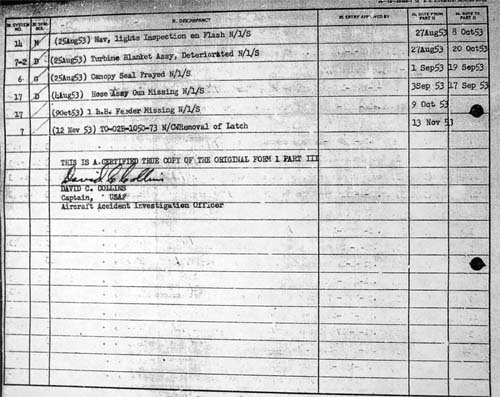 SYSTEM NO. SYM- BOL DISCREPANCY RE ENTRY APPROVED BY DATE FROM PART II DATE TO PART II
14 N (25Aug53) Nav, lights Inspection on Flash N/1/S 27Aug53 8 Oct53
7-2 D (25Aug53) Turbine Blanket Assy, Deteriorated N/1/S 27Aug53 20 Oct53
6 G (25Aug53) Canopy Seal Frayed N/1/S 1 Sep53 19 Sep53
17 D (4Aug53) Hose Assy Gun Missing N/1/S 3Sep53 17 Sep53
17 (9Oct53) 1 Feeder Missing N/1/S 9 Oct 53
7 (12 Nov 53) TO-02B-105D-73 Removal of Latch 13 Nov 53
THIS IS A CERTIFIED TRUE COPY OF THE ORIGINAL FORM 1 PART III
David C Collins
DAVID C. COLLINS
Captain, USAF
Aircraft Accident Investigation Officer